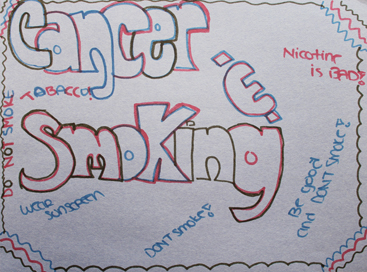 Cancer
Nicotine
is BAD!
DO NOT SMOKE
TOBACCO!
Smoking
WEAR
SUNSCREEN
DON'T SMOKE!
Be good
and DON'T SMOKE!